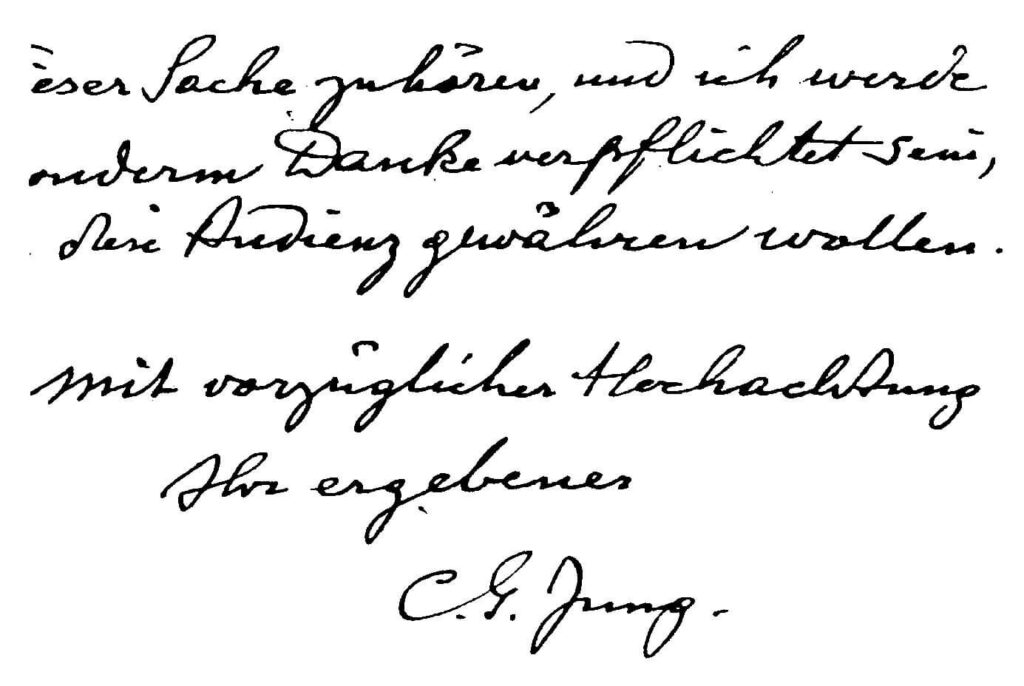 ieser Sache zuhören, und ich werde
onderm Danke verpflichtet sein,
diese Audienz gewähren wollen.
Mit vorzüglicher Hochachtung
Ihr ergebener
C. G. Jung.